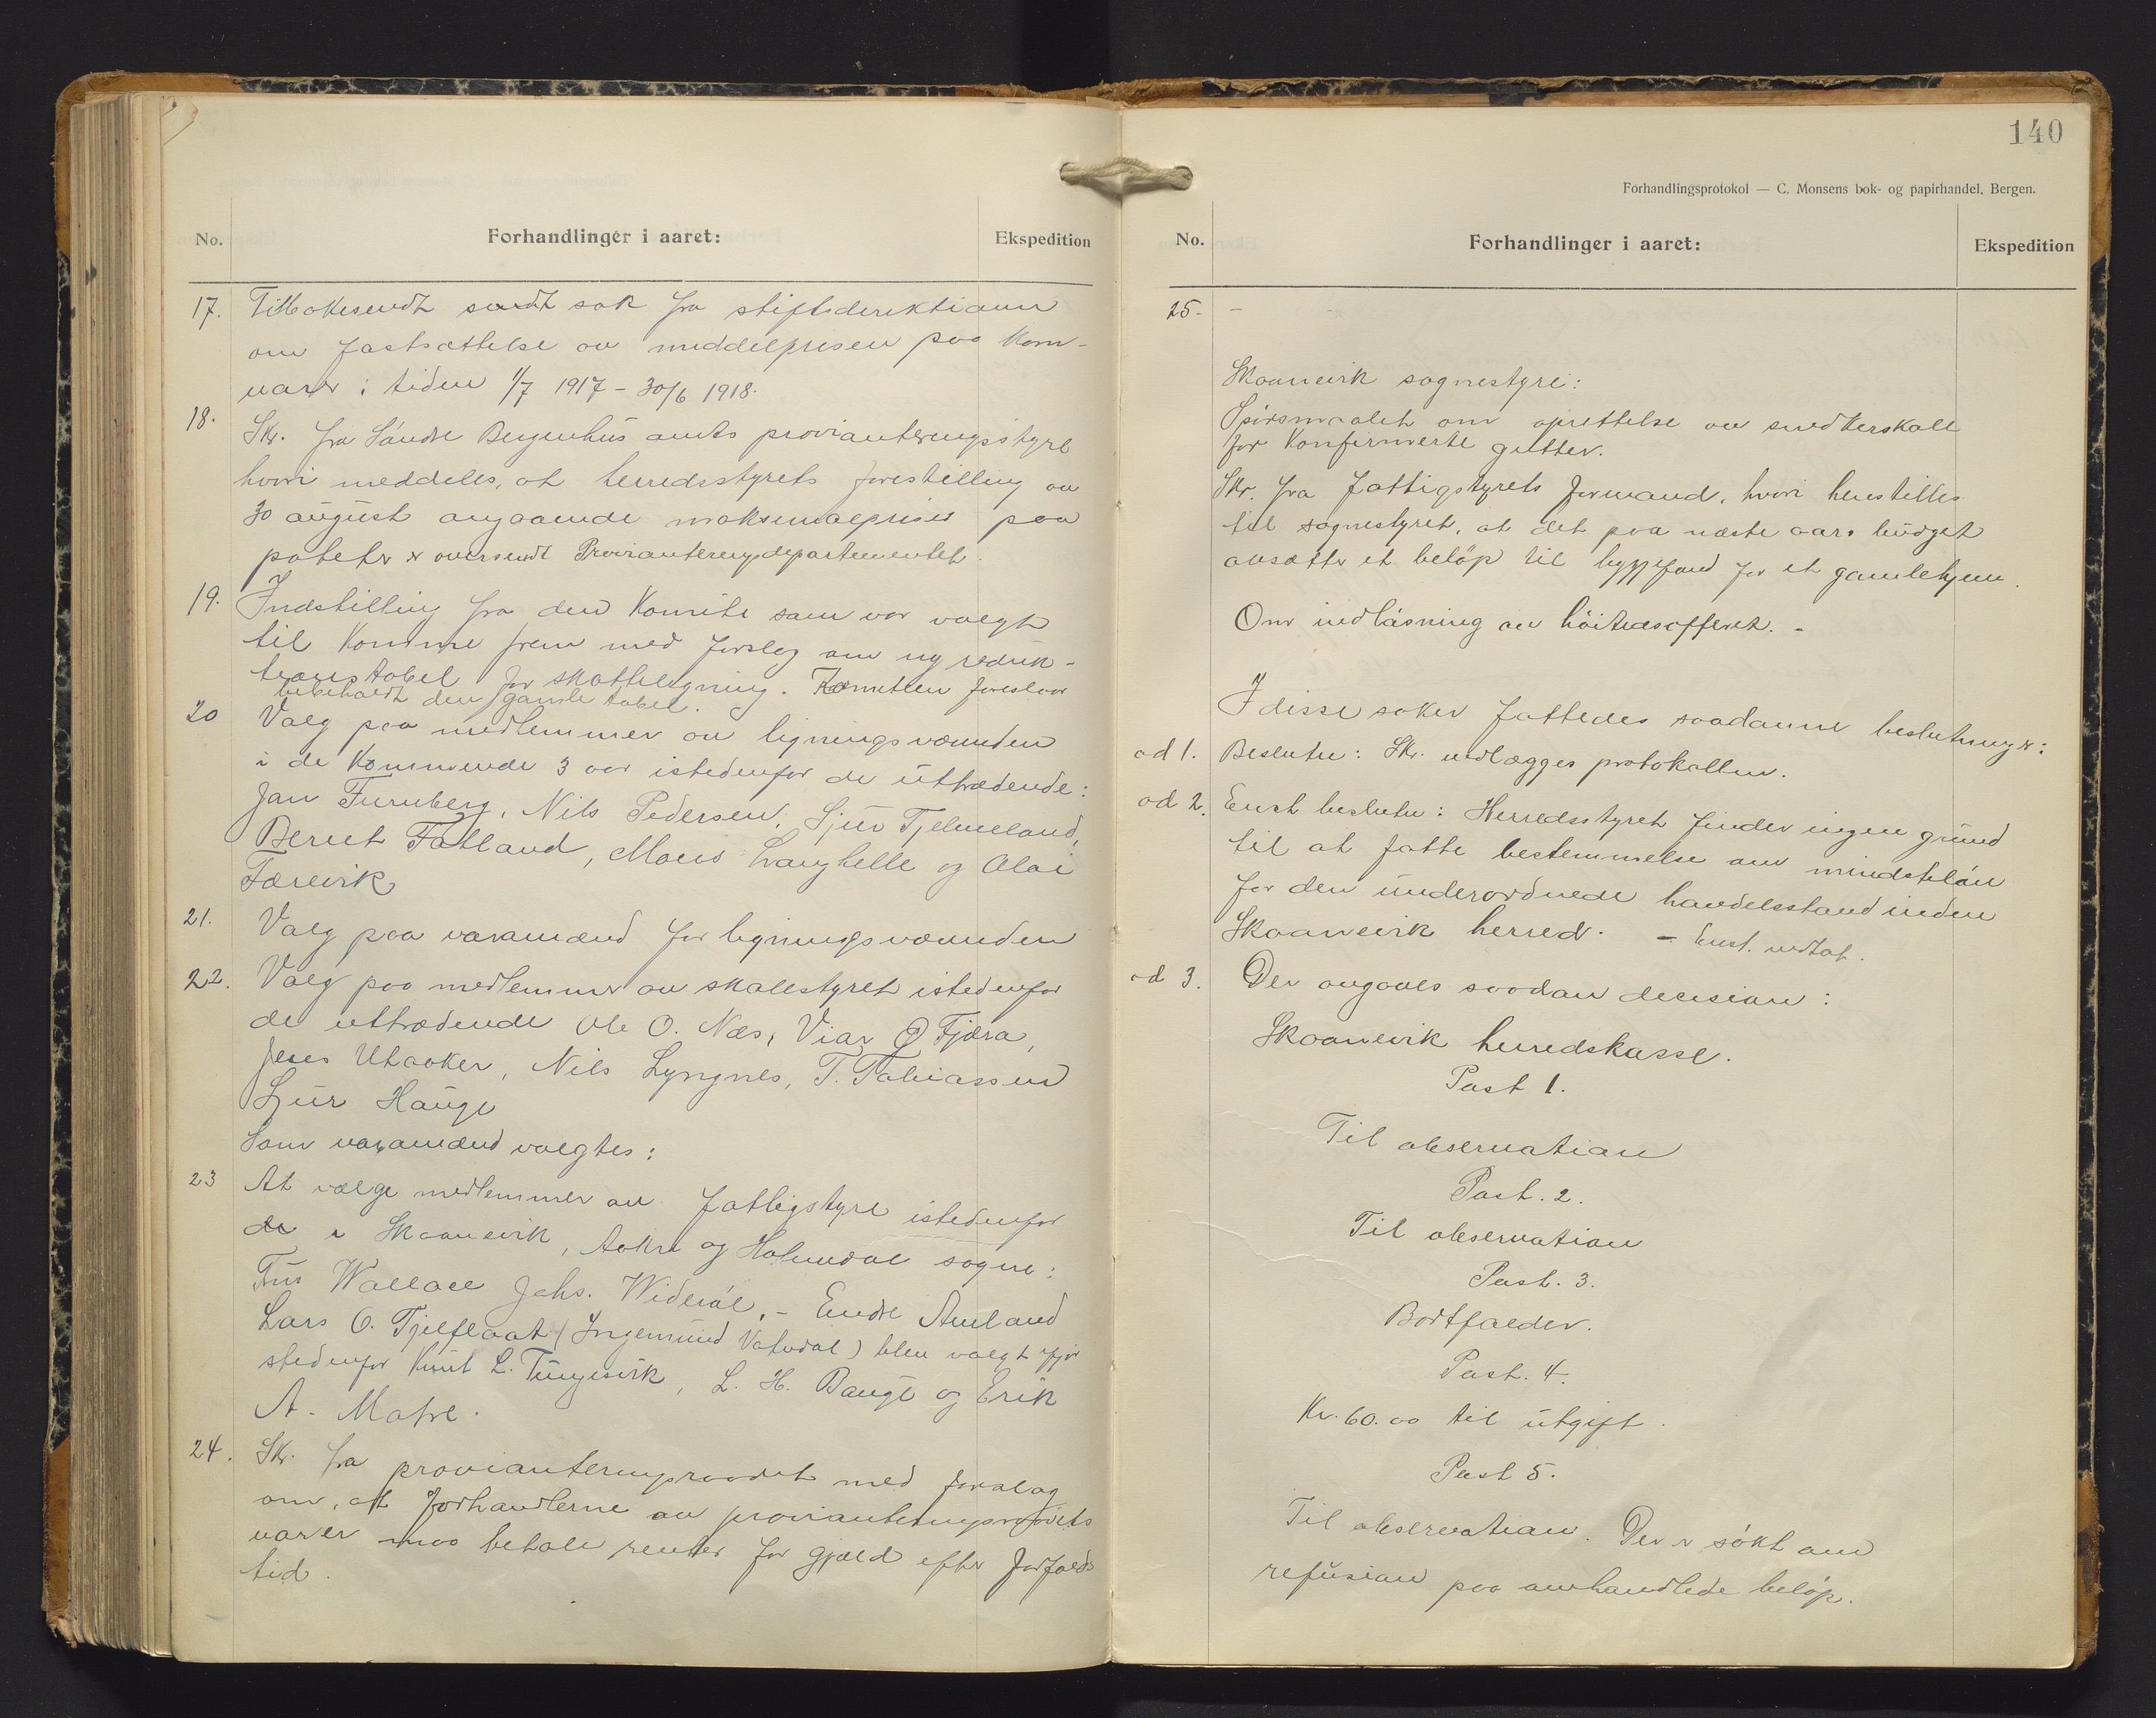 No.
Forhandlinger i aaret:
Ekspedition
17. Tilbakesendt sendt sak fra stiftsdirektionen
om fastsættelse av middelprisen paa korn-
varer i tiden 1/7 1917 - 30/6 1918.
18. Skr. fra Söndre Bergenhus amts provianteringsstyre
hvori meddeles, at herredsstyrets forestilling av
30 august angaaende maksimalpriser paa
poteter er oversendt Provianteringsdepartementet.
19. Indstilling fra den komite som var valgt
til komme frem med forslag om ny reduk-
tionstabel for skatteligning. Komiteen foreslaar
bibeholdt den gamle tabel.
20 Valg paa medlemmer av ligningsvæmnden
i de kommende 3 aar istedenfor de uttrædende:
Jan Furuberg, Nils Pedersen, Sjur Tjelmeland,
Bernt Fatland, Mons Langhelle og Olai
Færevik
21. Valg paa varamænd for ligningsvæmnden
22. Valg paa medlemmer av skolestyret istedenfor
de uttrædende Ole O. Næs, Viar Ø Fjæra,
Jens Utaaker, Nils Lyngnes, T. Tobiassen
Sjur Hauge
Som varamænd valgtes:
23 At vælge medlemmer av fattigstyre istedenfor
de i Skaanevik, Aakre og Holmedal sogne:
Fru Wallace Johs. Wideröe, - Endre Amland
Lars O. Tjelflaat (Ingemund Vatndal) blev valgt ifjor
stedenfor Knut L. Tungesvik, L. H. Bauge og Erik
A. Matre.
24. Skr. fra provianteringsraadet med forslag
om, at forhandlerne av provianteringsraadets
varer maa betale renter for gjæld efter forfalds
tid.
140
Forhandlingsprotokol — C. Monsens bok- og papirhandel, Bergen.
No.
Forhandlinger i aaret:
Ekspedition
25. -
Skaanevik sognestyre:
Spörsmaalet om oprettelse av
for konfirmerte gutter.
Skr. fra fattigstyrets formand, hvori henstilles
til sognestyret, at det paa næste aars budget
avsætter et belöp til byggefond for et gamlehjem.
Om indlösning av höitidsofferet. -
I disse saker fattedes saadanne beslutninger:
ad 1. Beslutn: Skr. vedlægges protokollen.
ad 2. Enst beslutn: Herredsstyret finder ingen grund
til at fatte bestemmelse om mindstelön
for den underordnede handelsstand inden
Skaanevik herred. - Enst. vedtat.
ad 3. Der avgaaes saadan decision:
Skaanevik herredskasse.
Post 1.
Til observation
Post. 2.
Til observation
Post. 3.
Bortfalder.
Post. 4.
Kr. 60.00 til utgift.
Post 5.
Til observation. Der er sökt om
refusion paa omhandlede belöp.